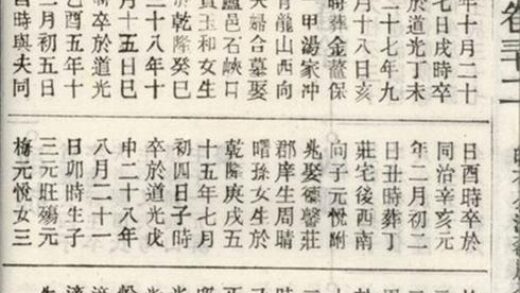 卷
年十月二十
七日戌時卒
於道光丁未
二十七年九
月十八日亥
時葬金鰲保
甲湯家冲
青龍山西向
夫婦合墓娶
邑石峽口
玉和女生
於乾隆癸巳
三十八年十
月十五日巳
時卒於道光
酉五年十
二月初五日
酉時與夫同
日酉時卒於
同治辛亥元
年二月初二
日丑時葬丁
莊宅後西南
向子元悅附
兆娶德馨莊
郡庠生周晴
曙孫女生於
乾隆庚戌五
十五年七月
初四日子時
卒於道光戊
申二十八年
八月二十一
日卯時生子
三元旺殤元
梅元悅女三